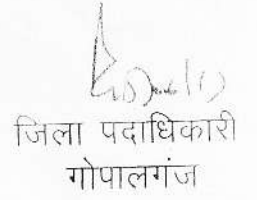 जिला पदाधिकारी
गोपालगंज